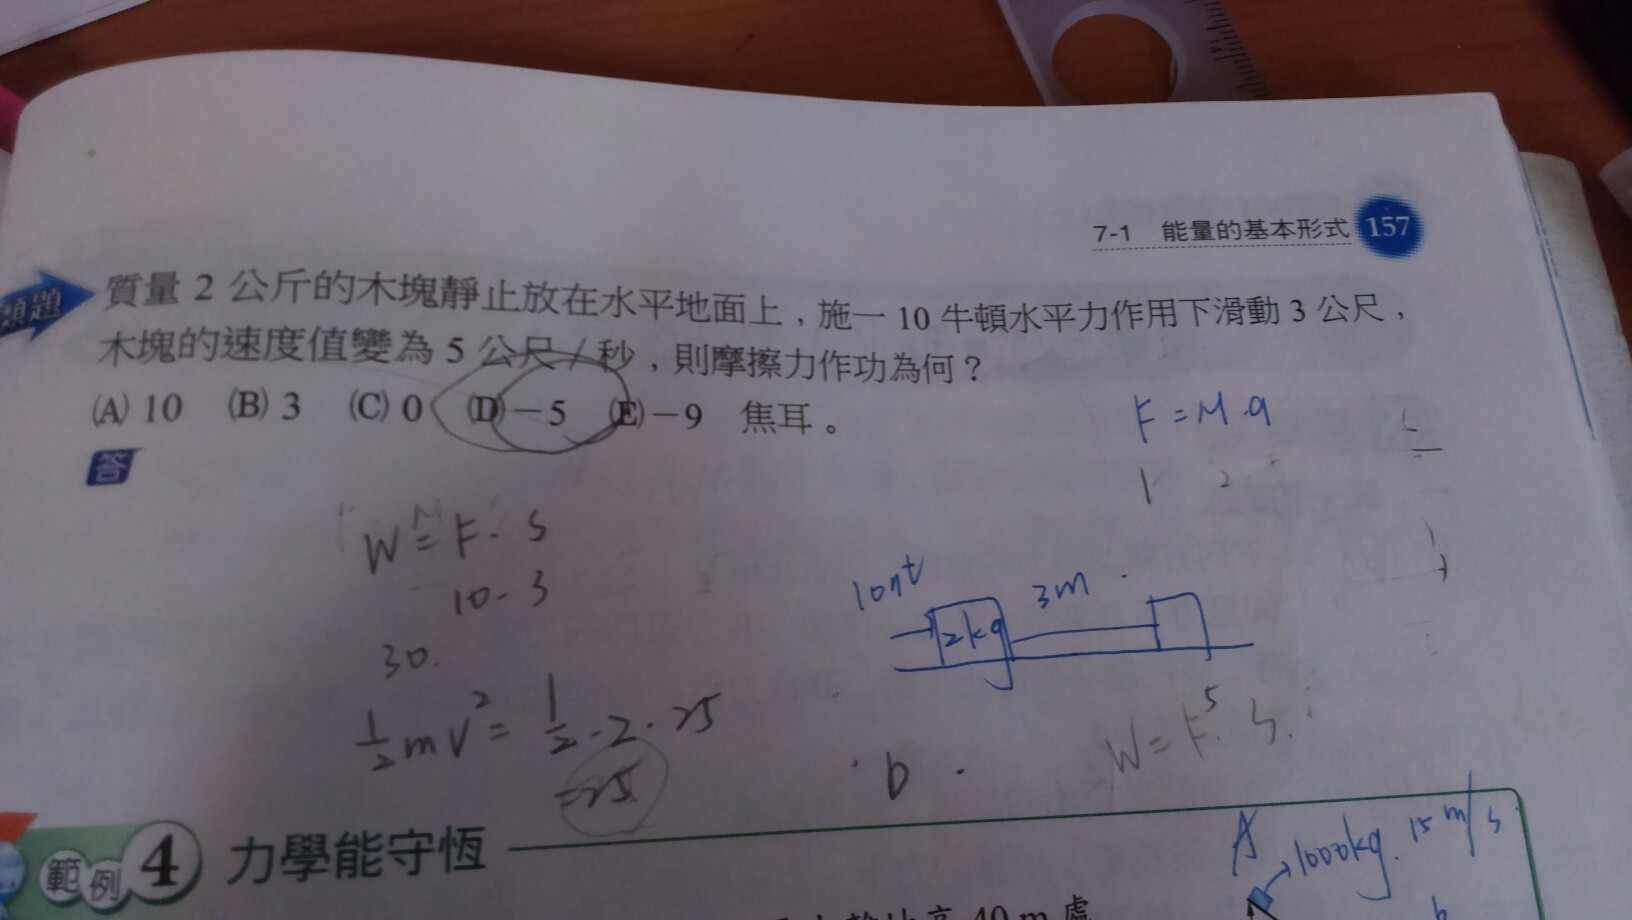 7-1 能量的基本形式 157
類題 質量 2 公斤的木塊靜止放在水平地面上，施一 10 牛頓水平力作用下滑動 3 公尺，
木塊的速度值變為 5 公尺／秒，則摩擦力作功為何？
(A) 10 (B) 3 (C) 0 (D) －5 (E) －9 焦耳。
F = M·a
答
1 2
W = F·S
10·3
10nt
2kg
3m
30.
½mv² = ½·2·25
=25
b
W = F·S
5
範例 4 力學能守恆
A 1000kg. 15 m/s
40 m 處